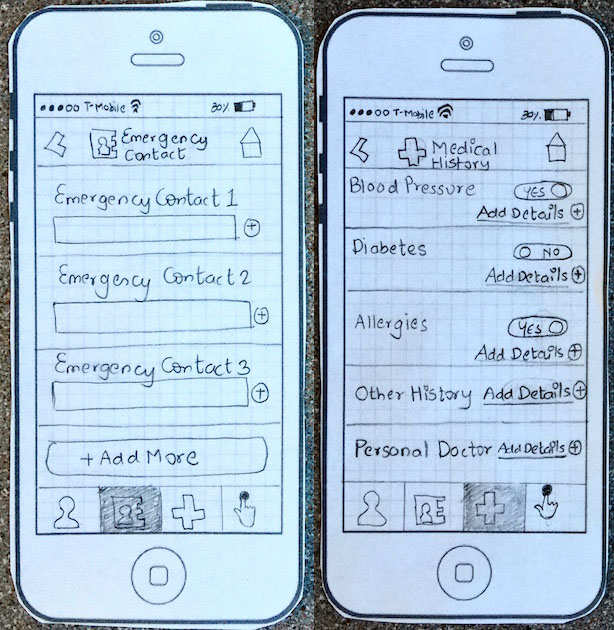 T-Mobile 30%
Emergency
Contact
Emergency Contact 1
Emergency Contact 2
Emergency Contact 3
+ Add More
T-Mobile 30%
Medical
History
Blood Pressure YES
Add Details +
Diabetes NO
Add Details +
Allergies YES
Add Details +
Other History Add Details +
Personal Doctor Add Details +